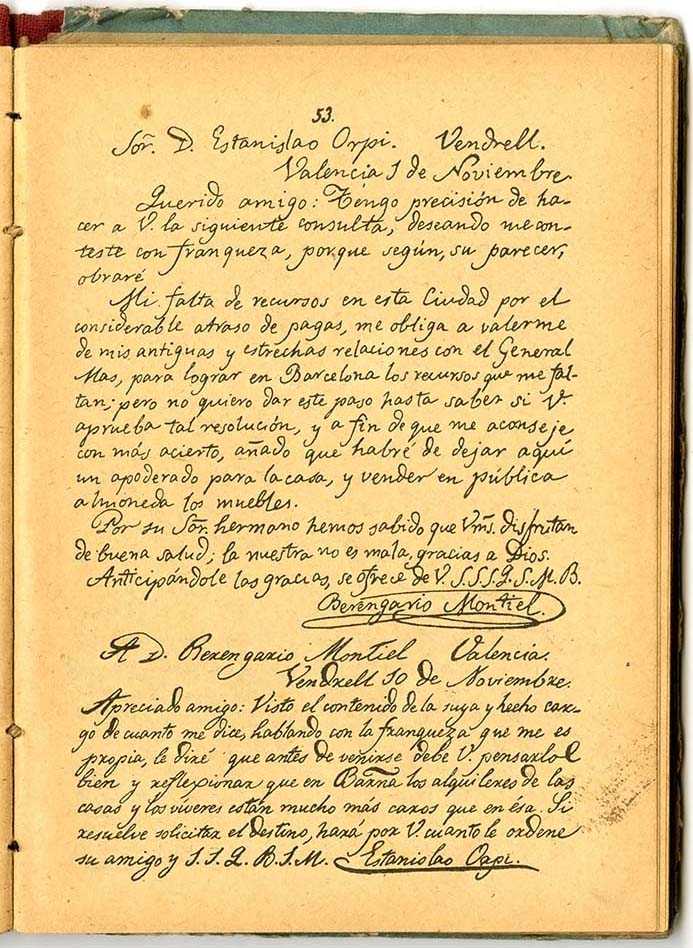 53.
Sor. D. Estanislao Orpi. Vendrell.
Valencia 1 de Noviembre
Querido amigo: Tengo precisión de ha-
cer a V. la siguiente consulta, deseando me con-
teste con franqueza, porque según, su parecer,
obraré
Mi falta de recursos en esta Ciudad por el
considerable atraso de pagas, me obliga a valerme
de mis antiguas y estrechas relaciones con el General
Mas, para lograr en Barcelona los recursos que me fal-
tan; pero no quiero dar este paso hasta saber si V.
aprueba tal resolución, y a fin de que me aconseje
con más acierto, añado que habré de dejar aquí
un apoderado para la casa, y vender en pública
almoneda los muebles.
Por su Sor. hermano hemos sabido que Vms. disfrutan
de buena salud; la nuestra no es mala, gracias a Dios.
Anticipándole las gracias, se ofrece de V. S.S.S.Q.S.M.B.
Berengario Montiel.
A D. Berengario Montiel Valencia.
Vendrell 10 de Noviembre.
Apreciado amigo: Visto el contenido de la suya y hecho car-
go de cuanto me dice, hablando con la franqueza que me es
propia, le diré que antes de venirse debe V. pensarlo
bien y reflexionar que en Barna los alquileres de las
casas y los víveres están mucho más caros que en esa. Si
resuelve solicitar el destino, hará por V. cuanto le ordene
su amigo y S.S.Q.B.S.M. Estanislao Orpi.